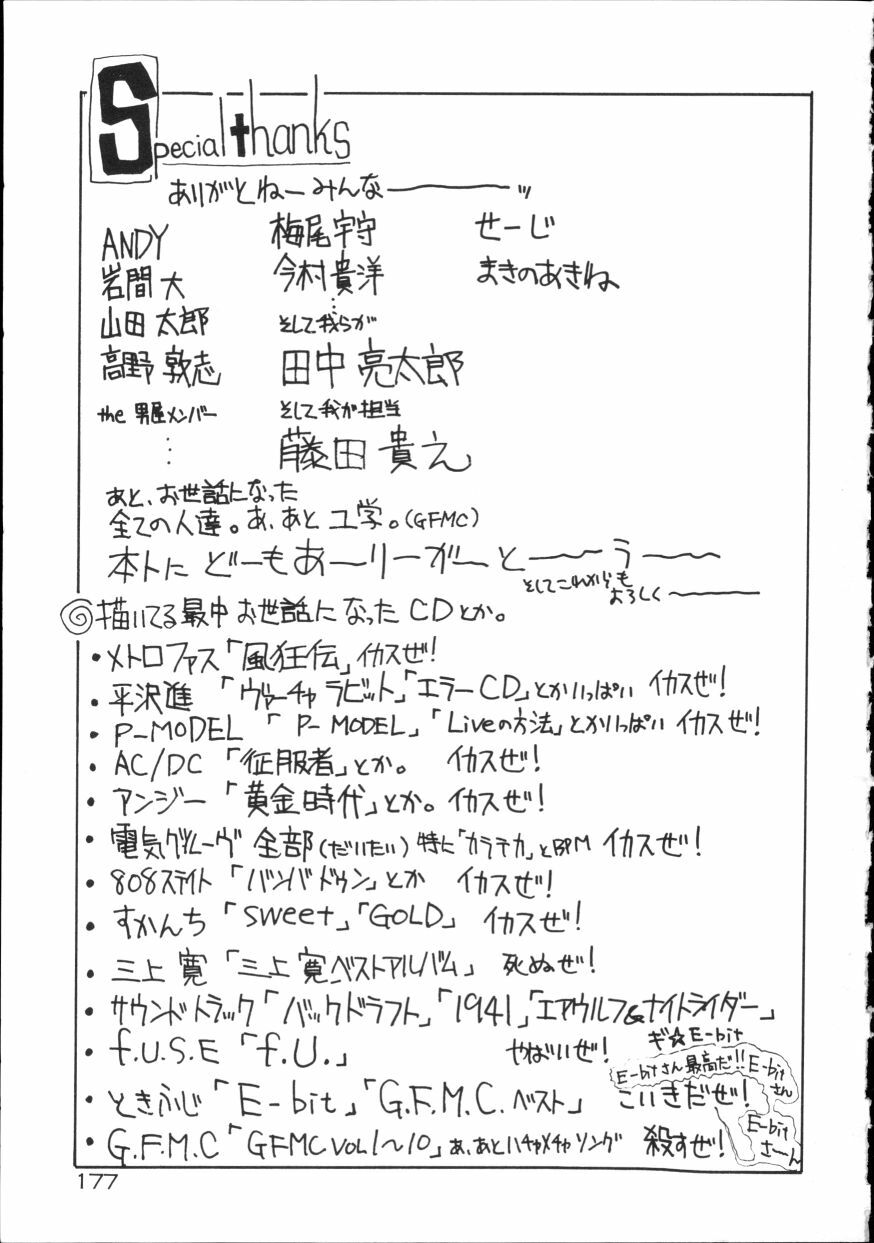 Special thanks
ありがとねーみんな————ッ
ANDY 梅尾宇守 せーじ
岩間大 今村貴洋 まきのあきね
山田太郎 そして我らが
高野敦志 田中亮太郎
the 男屋メンバー そして我が担当
藤田貴之
あと、お世話になった
全ての人達。あ、あとユ学。(GFMC)
本トに どーもあーりーがーとーーうーー
そしてこれからも
よろしく————
描いてる最中お世話になったCDとか。
・メトロファス「風狂伝」イカスぜ!
・平沢進 「ヴァーチャラビット」「エラーCD」とかいっぱい イカスぜ!
・P-MODEL 「P-MODEL」「Liveの方法」とかいっぱい イカスぜ!
・AC/DC 「征服者」とか。 イカスぜ!
・アンジー 「黄金時代」とか。イカスぜ!
・電気グルーヴ 全部(だいたい) 特に「カラテカ」とBPM イカスぜ!
・808ステイト 「バンバドゥン」とか イカスぜ!
・すかんち 「sweet」「GOLD」 イカスぜ!
・三上寛 「三上寛ベストアルバム」 死ぬぜ!
・サウンドトラック「バックドラフト」「1941」「エアウルフ&ナイトライダー」
・f.U.S.E 「f.U.」 やばいぜ!
ギ☆E-bit
E-bitさん最高だ!!
E-bitさん
・ときふじ「E-bit」「G.F.M.C.ベスト」 こいきだぜ!
E-bitさーん
・G.F.M.C「GFMC VOL1〜10」あ、あとハチャメチャソング 殺すぜ!
177